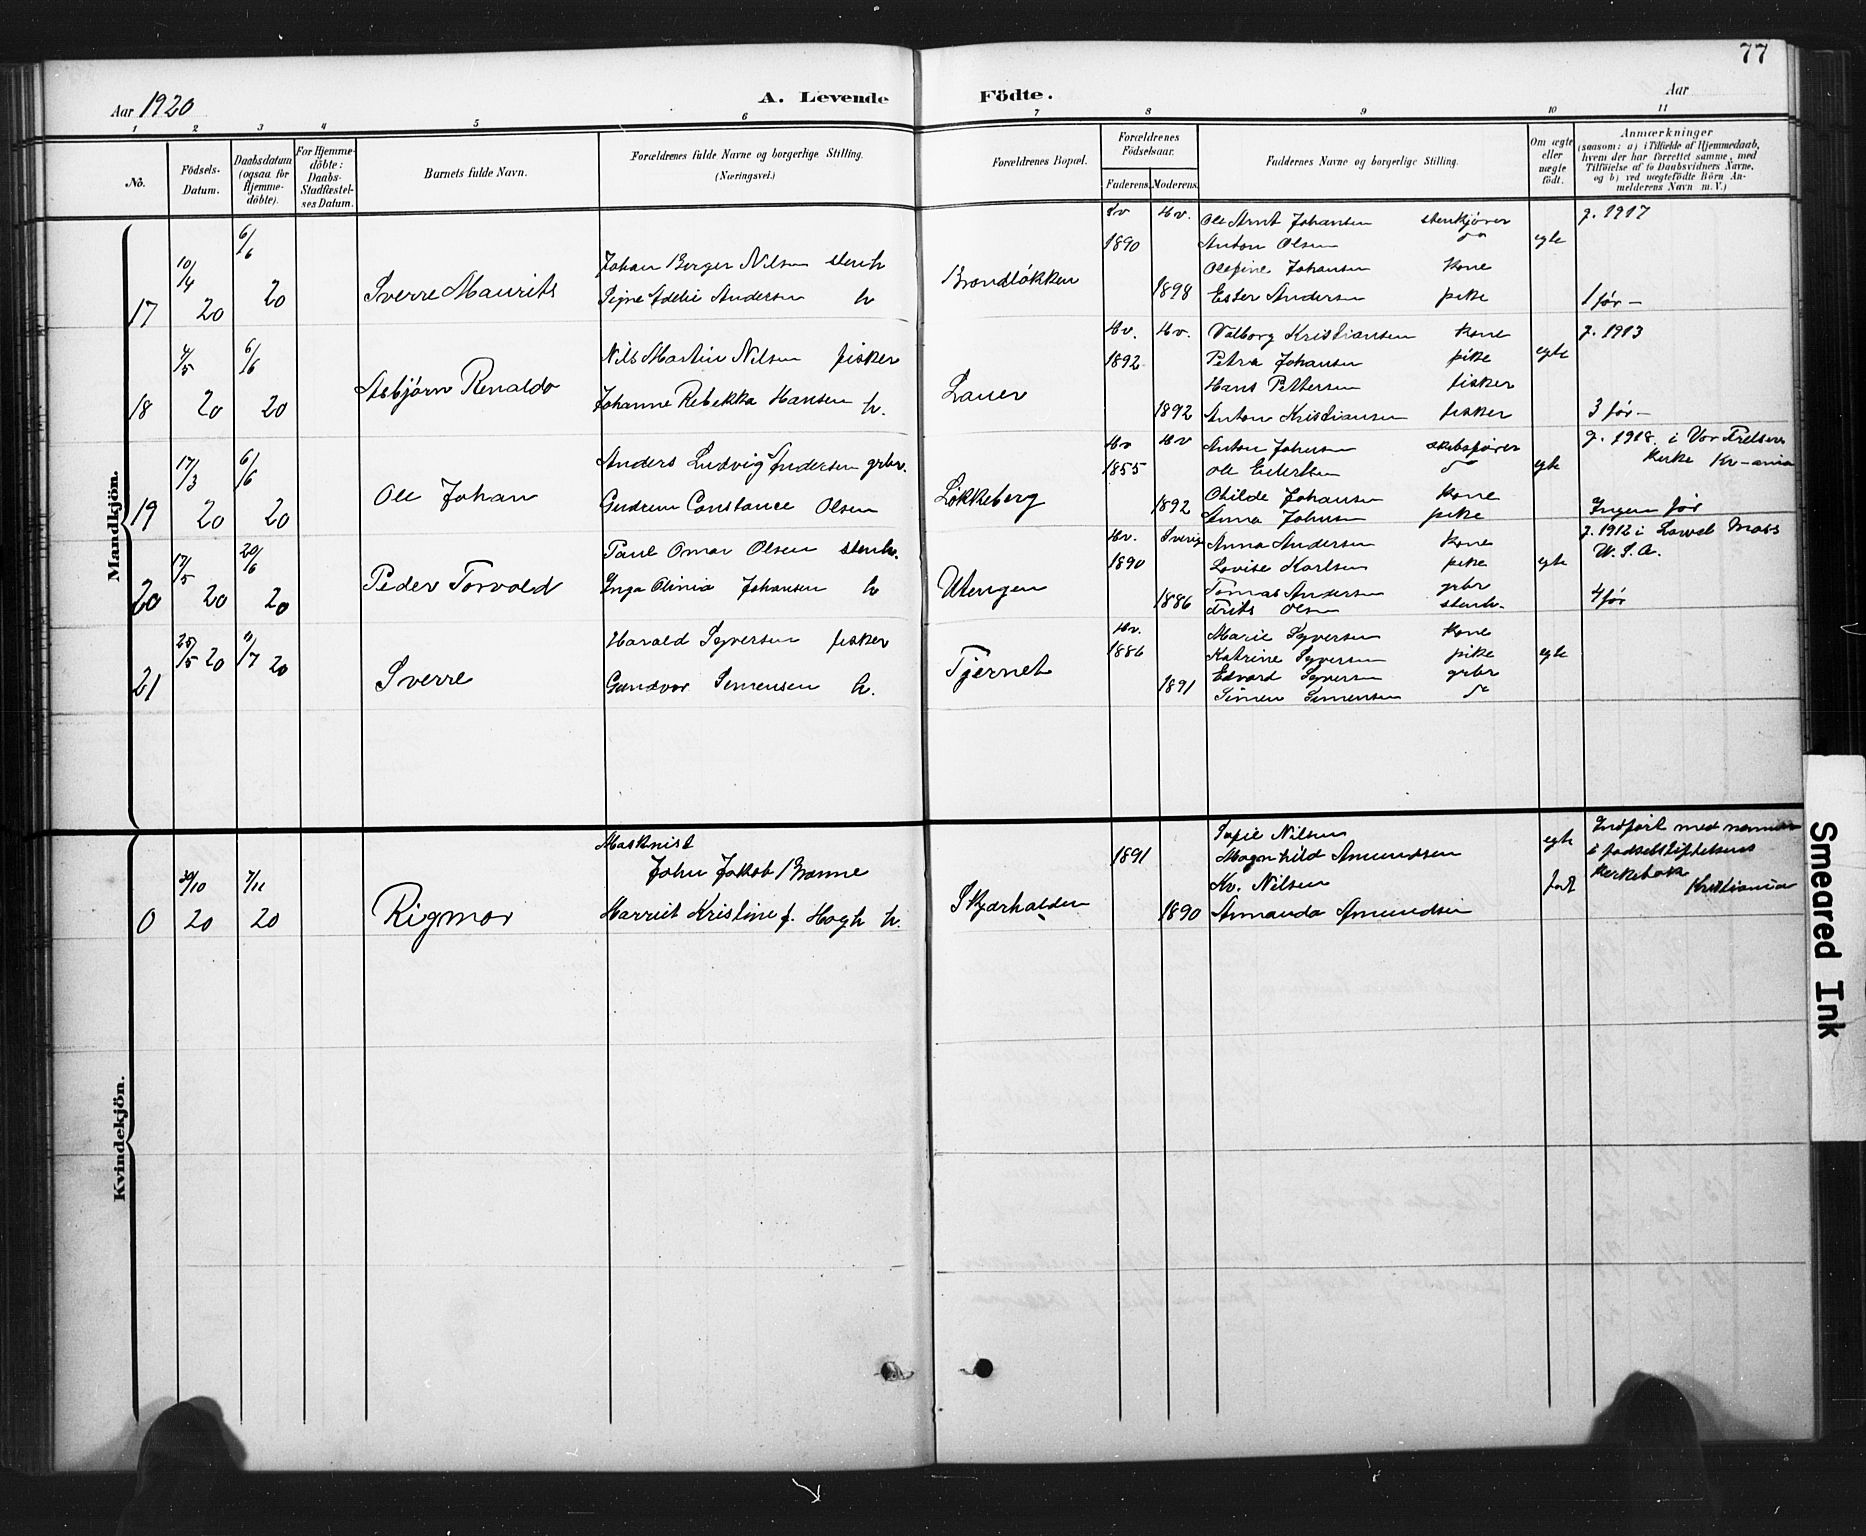 77
Aar 1920
A. Levende Födte.
Aar
1 2 3 4 5 6 7 8 9 10 11
No.
Födsels-Datum.
Daabsdatum (ogsaa for Hjemmedöbte).
For Hjemmedöbte: Daabs-Stadfæstelses Datum.
Barnets fulde Navn.
Forældrenes fulde Navne og borgerlige Stilling. (Næringsvei.)
Forældrenes Bopæl.
Forældrenes Födselsaar.
Faderens. Moderens.
Faddernes Navne og borgerlige Stilling.
Om ægte eller uægte födt.
Anmærkninger
(saasom: a) i Tilfælde af Hjemmedaab, hvem der har forrettet samme, med Tilföielse af to Daabsvidners Navne, og b) ved uægtefödte Börn Anmelderens Navn m. V.)
Mandkjön.
17
10/4 20
6/6 20
Sverre Maurits
Johan Birger Nilsen stenh
Signe Adelie Andersen h
Brændløkken
Hv. 1890
Hv. 1898
Ole Arnt Johansen stenkjører
Anton Olsen do
Olefine Johansen kone
Ester Andersen pike
egte
g. 1917
1 før -
18
4/5 20
6/6 20
Asbjørn Renaldo
Nils Martin Nilsen fisker
Johanne Rebekka Hansen h.
Lauer
Hv. 1892
Hv. 1892
Valborg Kristiansen kone
Petra Johansen pike
Hans Pettersen fisker
Anton Kristiansen fisker
egte
g. 1913
3 før -
19
17/3 20
6/6 20
Ole Johan
Anders Ludvig Andersen grbr.
Gudrun Constance Olsen
Løkkeberg
Hv 1855
Hv 1892
Anton Johnsen skibsfører
Ole Eilertsen do
Otilde Johansen kone
Anna Johnsen pike
egte
g. 1918 i Vor Frelsers
kirke Kr-ania
Ingen før
20
17/5 20
20/6 20
Peder Torvald
Paul Omar Olsen stenh.
Inga Olinia Johansen h
Utengen
Hv. 1890
Sverig 1886
Anna Andersen kone
Lovise Karlsen pike
Tomas Andersen grbr
Frits Olsen stenh.
egte
g. 1912 i Lowel Mass
U. S. A.
4 før
21
25/5 20
11/7 20
Sverre
Harald Syversen fisker
Gundvor Simensen h.
Tjernet
Hv. 1886
1891
Marie Syversen kone
Katrine Syversen pike
Edvard Syversen grbr
Simen Simensen do
egte
Kvindekjön.
0
30/10 20
7/11 20
Rigmor
Masknist
John Jakob Brønne
Harriet Kristine f. Høgh h.
Skjærhalden
1891
1890
Sofie Nilsen
Magnhild Amundsen
Kv. Nilsen
Amanda Amundsen
egte født
Indført med nummer
i fødselsstiftelsens
kirkebok
Kristiania
Smeared Ink